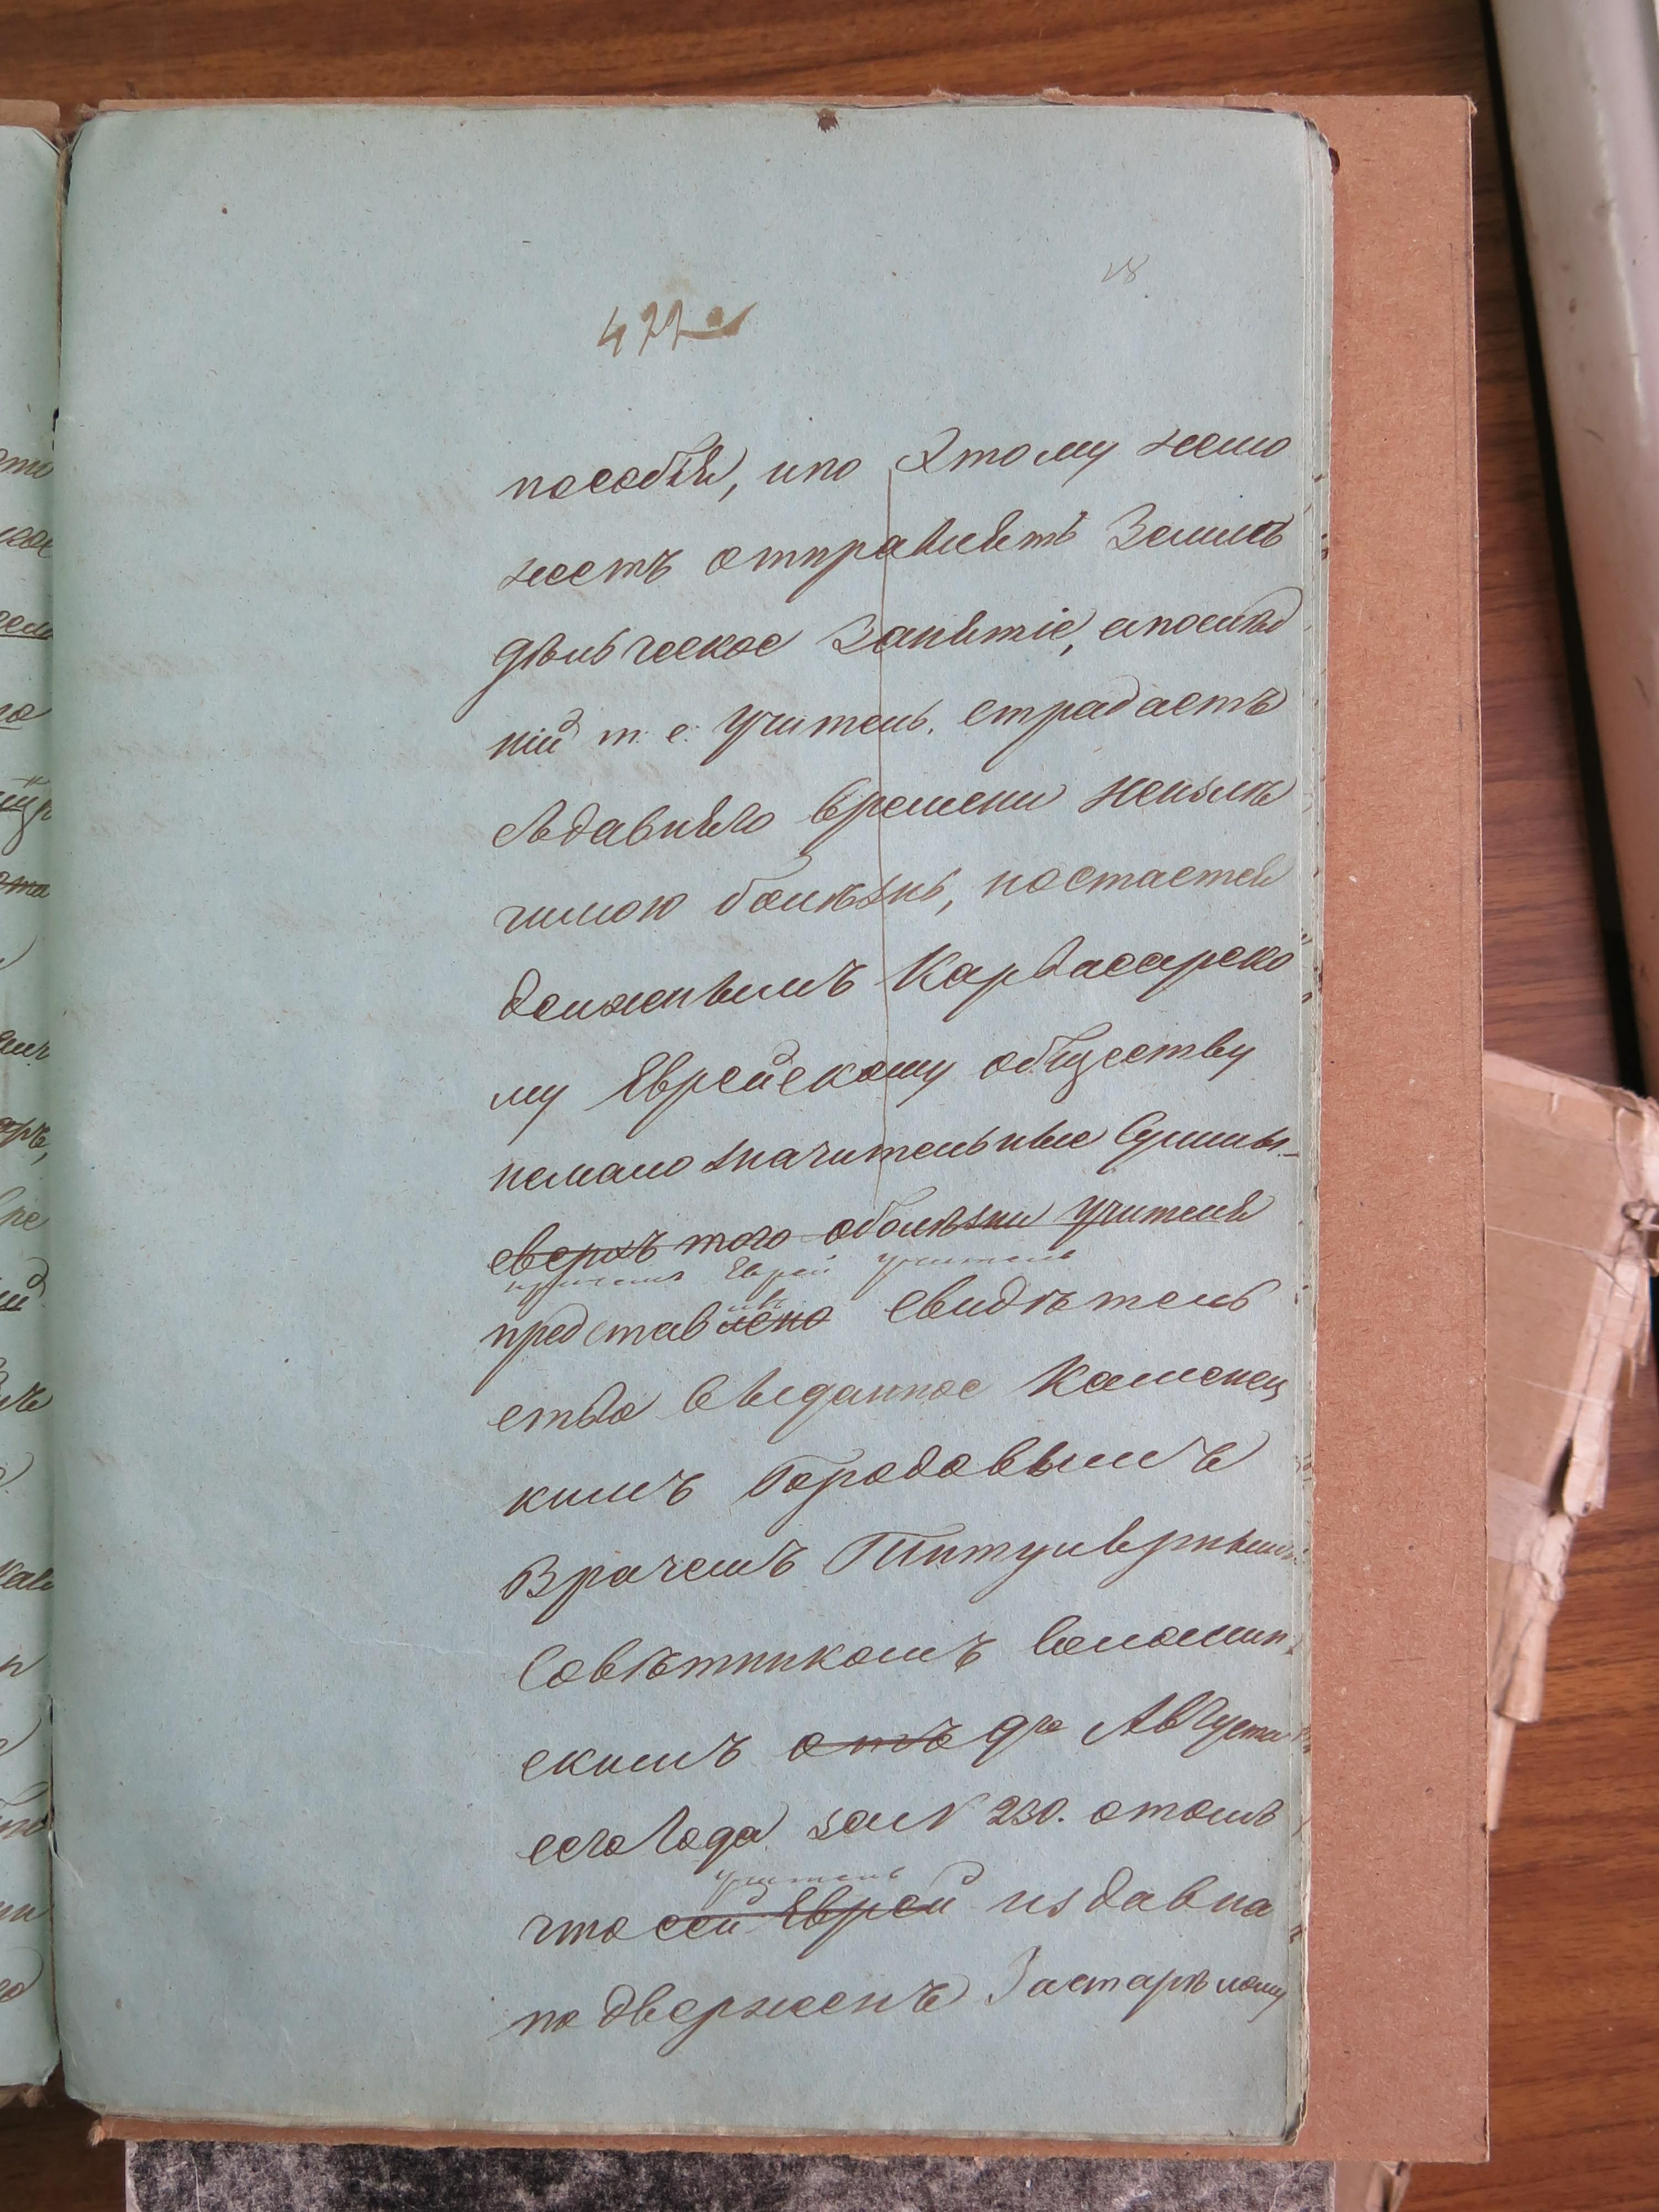 18
477
пособія, ипо Этому немо
жетъ отправлять Земле
дѣльческое Занятіе, апослѣд
ній т. е. Учитель. страдаетъ
съдавняго времени неизлѣ
чимою болѣзнь, иостается
должнымъ Карвасарско
му Еврейскому обществу
немало значительные Суммы.
сверхъ того оболѣзни Учителя
Еврей Учитель
представлено Свидѣтель
ство Выданное Каменец
кимъ Городовымъ
Врачемъ Титулярнымъ
Совѣтникомъ
скимъ отъ 9го Августа
сего года за N 230. отомъ
учитель
что сей Еврей издавна
подверженъ Застарѣлому